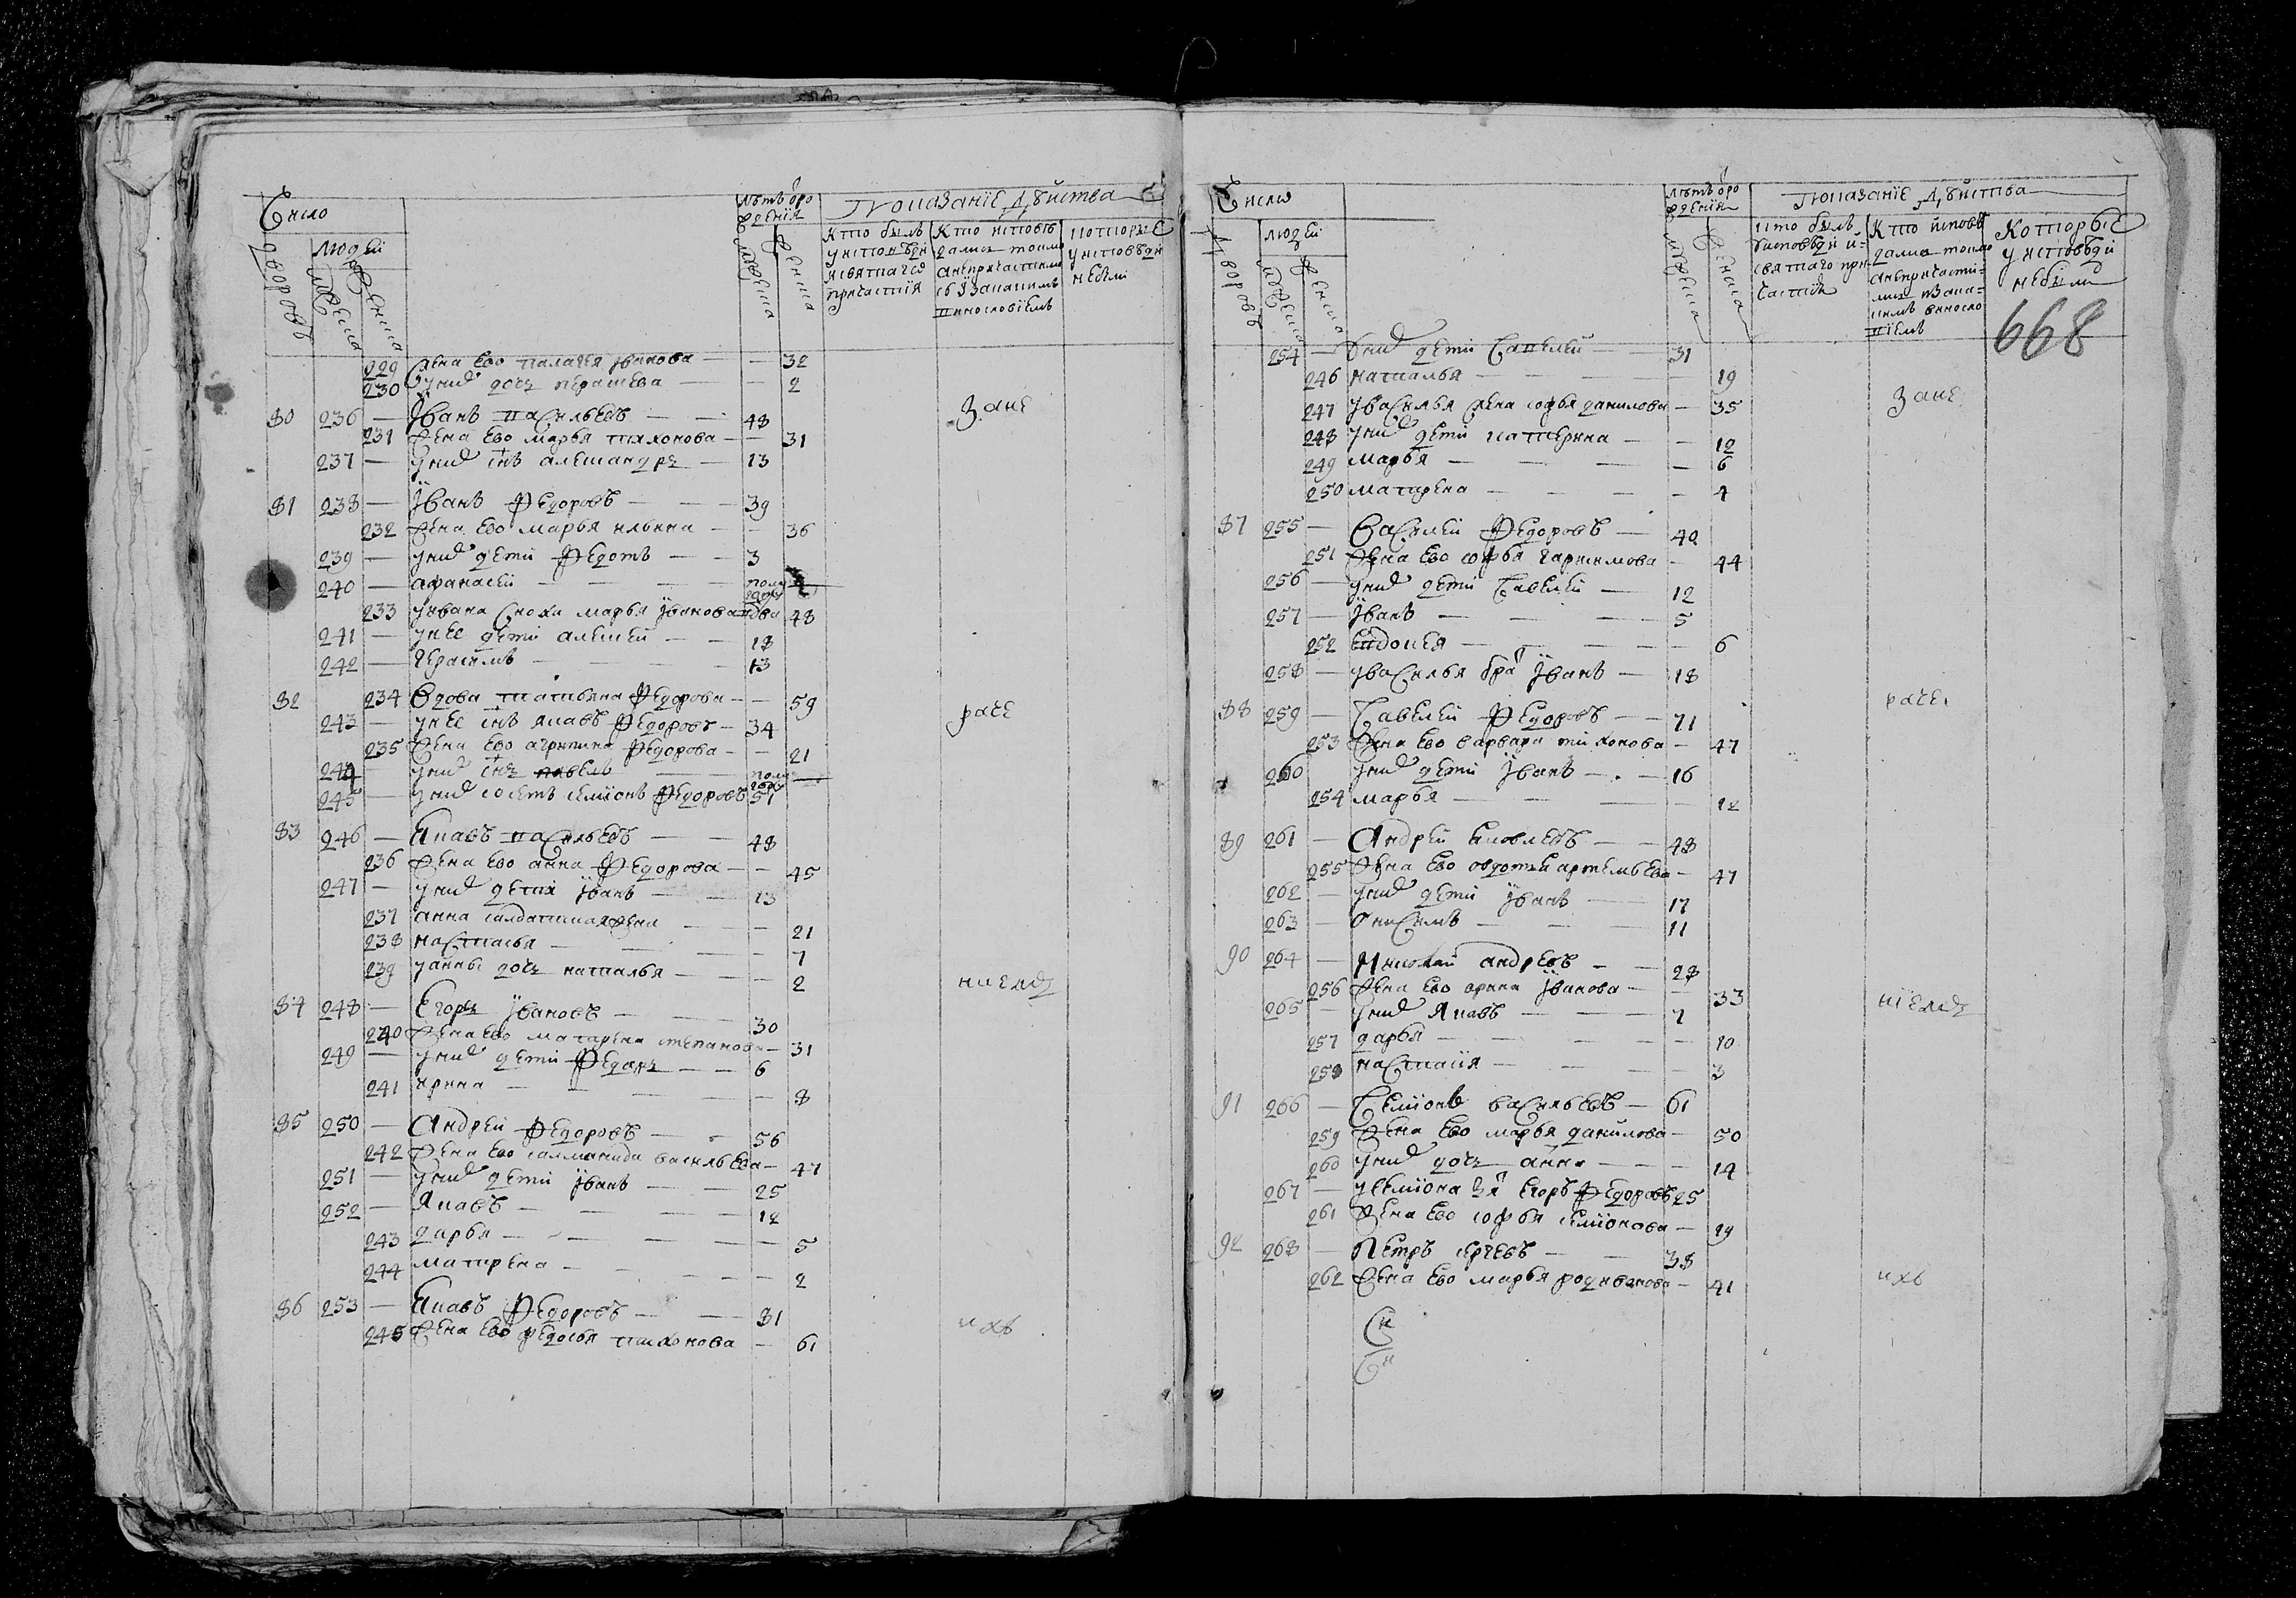 Число
лѣтъ ѿро
жденїя
Показанїе дѣйства
дворовъ
людей
мужеска
женска
мужеска
женска
Кто былъ у исповѣди и святаго причастїя
Кто исповѣдался токмо а не причастился и за каким винословїемъ
Которые у исповѣди не были
229 жена ево палагея Іванова — 32
230 у них дочь парасковья — 2
80 236 — Іванъ васильевъ — 48 Зане
231 жена ево марья тихонова — 31
237 — у них сн҃ъ алеѯандръ — 13
81 238 — Іванъ Ѳедоровъ — 39
232 жена ево марья ильина — 36
239 — у них дети Ѳедотъ — 3
240 — аѳанасей — полу году
233 у ивана сноха марья Іванова вдова 48
241 — у нее дети алеѯей — 18
242 — герасимъ — 13
82 234 Вдова татьяна Ѳедорова — 59 расе
243 — у нее сн҃ъ яковъ Ѳедоровъ — 34
235 жена ево агрипина Ѳедорова — 21
244 у них сн҃ъ павелъ — полу году
245 — у них сосетъ семионъ Ѳедоровъ 51
83 246 — Яковъ васильевъ — 48
236 жена ево анна Ѳедорова — 45
247 — у них дети Іванъ — 13
237 анна салдатская жена — 21
238 настасья — 7
239 у анны дочь наталья — 2
84 248 — Егоръ Івановъ — 30
240 жена ево матрена степанова — 31
249 — у них дети Ѳедоръ — 6
241 ирина — 8
85 250 — Андрей Ѳедоровъ — 56
242 жена ево саламанида васильева — 47
251 — у них дети Іванъ — 25
252 — Яковъ — 12
243 дарья — 5
244 матрена — 2
86 253 — Яковъ Ѳедоровъ — 81
245 жена ево ѳедосья тихонова — 61
Число
лѣтъ ѿро
жденїя
Показанїе дѣйства
дворовъ
людей
мужеска
женска
мужеска
женска
кто былъ у исповѣди и святаго причастїя
Кто исповѣдался токмо а не причастился и за каким винословїемъ
Которые у исповѣди не были
668
254 — у них дети Савелей — 31
246 наталья — 19
247 у василья жена соѳья данилова — 35 Зане
248 у них дети катерина — 12
249 марья — 6
250 матрена — 4
87 255 — Василей Ѳедоровъ — 40
251 жена ево соѳья гарасимова — 44
256 — у них дети Савелей — 12
257 — Іванъ — 5
252 евдокея — 6
258 — у василья братъ Іванъ — 18
88 259 — Савелей Ѳедоровъ — 71 расе
253 жена ево варвара тихонова — 47
260 у них дети Іванъ — 16
254 марья — 12
89 261 — Андрей Яковлевъ — 48
255 жена ево овдотья артемьева — 47
262 — у них дети Іванъ — 17
263 — Онисимъ — 11
90 264 — Николай андреевъ — 28
256 жена ево орина Іванова — 33
265 — у них Яковъ — 7
257 дарья — 10
258 настасія — 3
91 266 — Семионъ васильевъ — 61
259 жена ево марья данилова — 50
260 у них дочь анна — 14
267 — у семиона зять егоръ Ѳедоровъ 25
261 жена ево соѳья семионова — 29
92 268 — Петръ сергеевъ — 38
262 жена ево марья родионова — 41